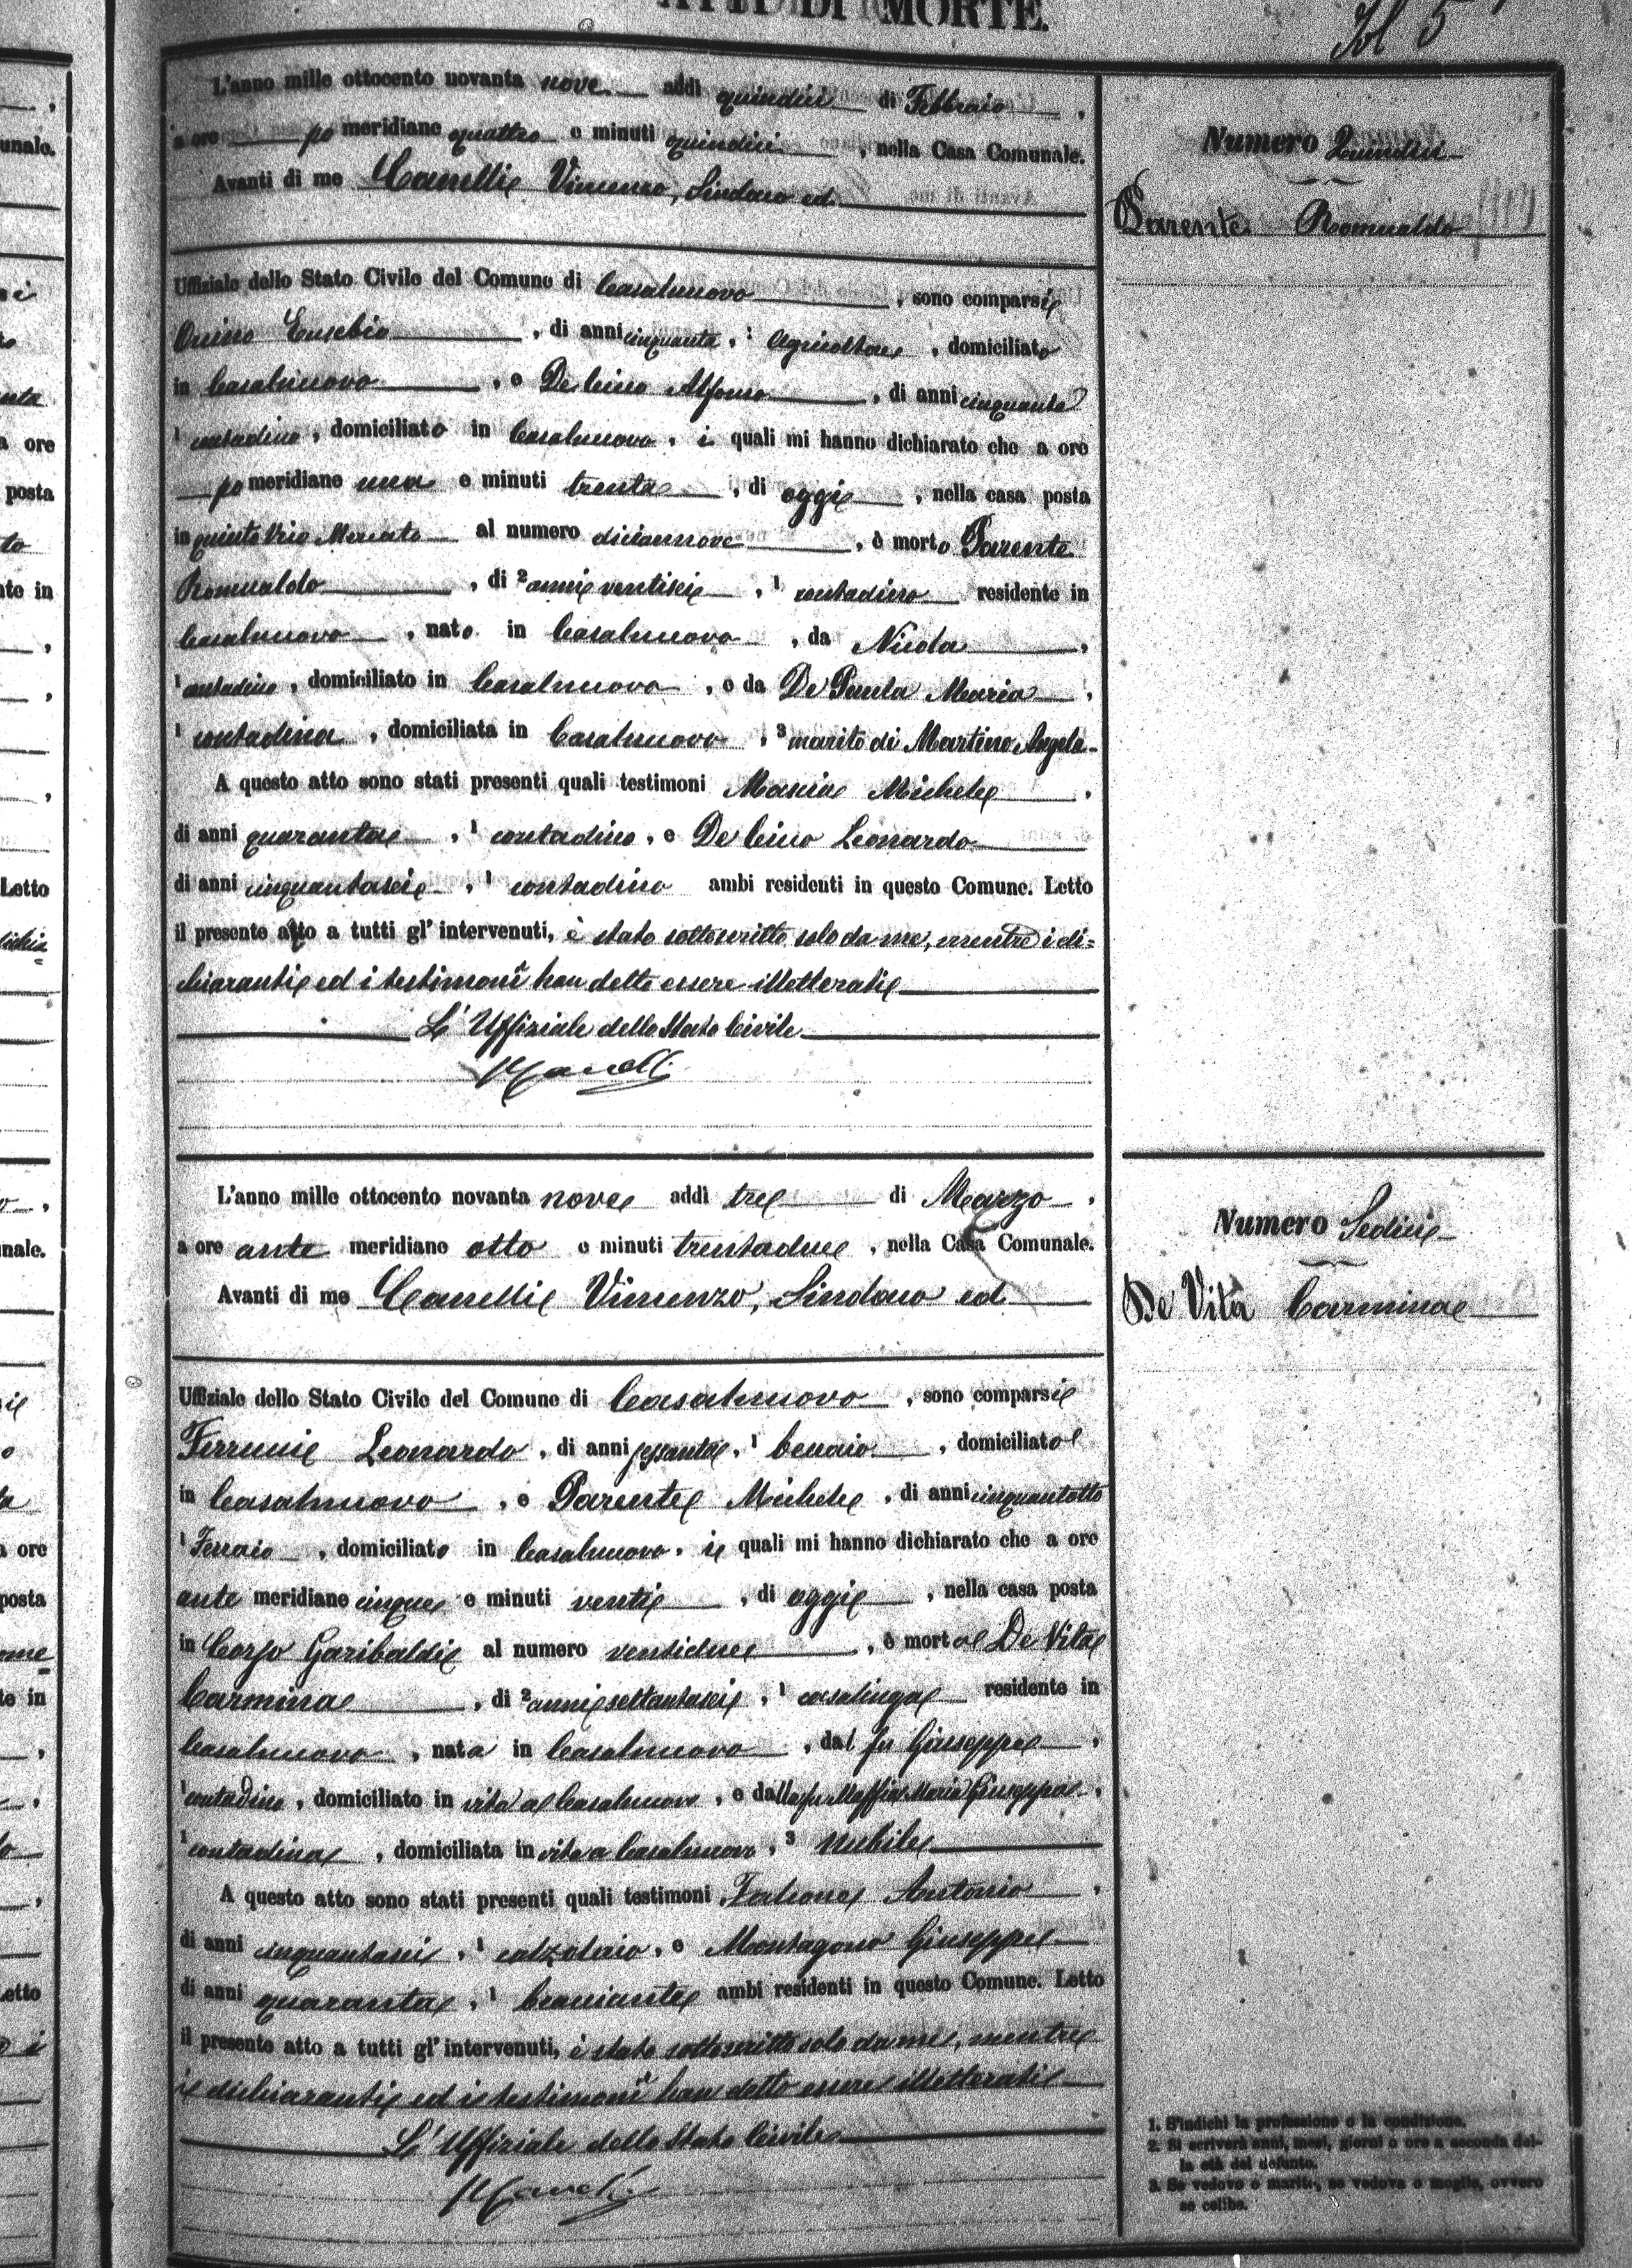 ATTI DI MORTE.
L'anno mille ottocento novanta nove addì quindici di Febbraio,
a ore po meridiane quattro e minuti quindici, nella Casa Comunale.
Avanti di me Canelli Vincenzo, Sindaco ed
Uffiziale dello Stato Civile del Comune di Casalnuovo, sono comparsi
Eusebio, di anni cinquanta, agricoltore, domiciliato
in Casalnuovo, e De Cicco Alfonso, di anni cinquanta
1 contadino, domiciliato in Casalnuovo, i quali mi hanno dichiarato che a ore
po meridiane una e minuti trenta, di oggi, nella casa posta
in quinto Vico Mercato al numero diciannove, è morto Parente
Romualdo, di 2 anni ventisei, 1 contadino residente in
Casalnuovo, nato in Casalnuovo, da Nicola,
1 contadino, domiciliato in Casalnuovo, e da De Paula Maria,
1 contadina, domiciliata in Casalnuovo, 3 marito di Martino Angela.
A questo atto sono stati presenti quali testimoni Mascia Michele,
di anni quaranta, 1 contadino, e De Cicco Leonardo
di anni cinquantasei, 1 contadino ambi residenti in questo Comune. Letto
il presente atto a tutti gl'intervenuti, è stato sottoscritto solo da me, mentre i di=
chiaranti ed i testimoni han detto essere illetterati
L'Uffiziale dello Stato Civile
Canelli
Numero Quindici
Parente Romualdo
L'anno mille ottocento novanta nove addì tre di Marzo,
a ore ante meridiane otto e minuti trentadue, nella Casa Comunale.
Avanti di me Canelli Vincenzo, Sindaco ed
Uffiziale dello Stato Civile del Comune di Casalnuovo, sono comparsi
Ferrucci Leonardo, di anni sessanta, 1 beccaio, domiciliato
in Casalnuovo, e Parente Michele, di anni cinquantotto
1 Ferraio, domiciliato in Casalnuovo, i quali mi hanno dichiarato che a ore
ante meridiane cinque e minuti venti, di oggi, nella casa posta
in Corso Garibaldi al numero ventidue, è morta De Vita
Carmina, di 2 anni settantasei, 1 casalinga residente in
Casalnuovo, nata in Casalnuovo, dal fu Giuseppe,
1 contadino, domiciliato in vita a Casalnuovo, e dalla fu Maffia Maria Giuseppa,
1 contadina, domiciliata in vita a Casalnuovo, 3 nubile
A questo atto sono stati presenti quali testimoni Falcone Antonio,
di anni cinquantasei, 1 calzolaio, e Montagano Giuseppe
di anni quaranta, 1 bracciante ambi residenti in questo Comune. Letto
il presente atto a tutti gl'intervenuti, è stato sottoscritto solo da me, mentre
i dichiaranti ed i testimoni han detto essere illetterati
L'Uffiziale dello Stato Civile
Canelli
Numero Sedici
De Vita Carmina
1. S'indichi la professione o la condizione.
2. Si scriverà anni, mesi, giorni o ore a seconda del-
la età del defunto.
3. Se vedovo o marito, se vedova o moglie, ovvero
se celibe.